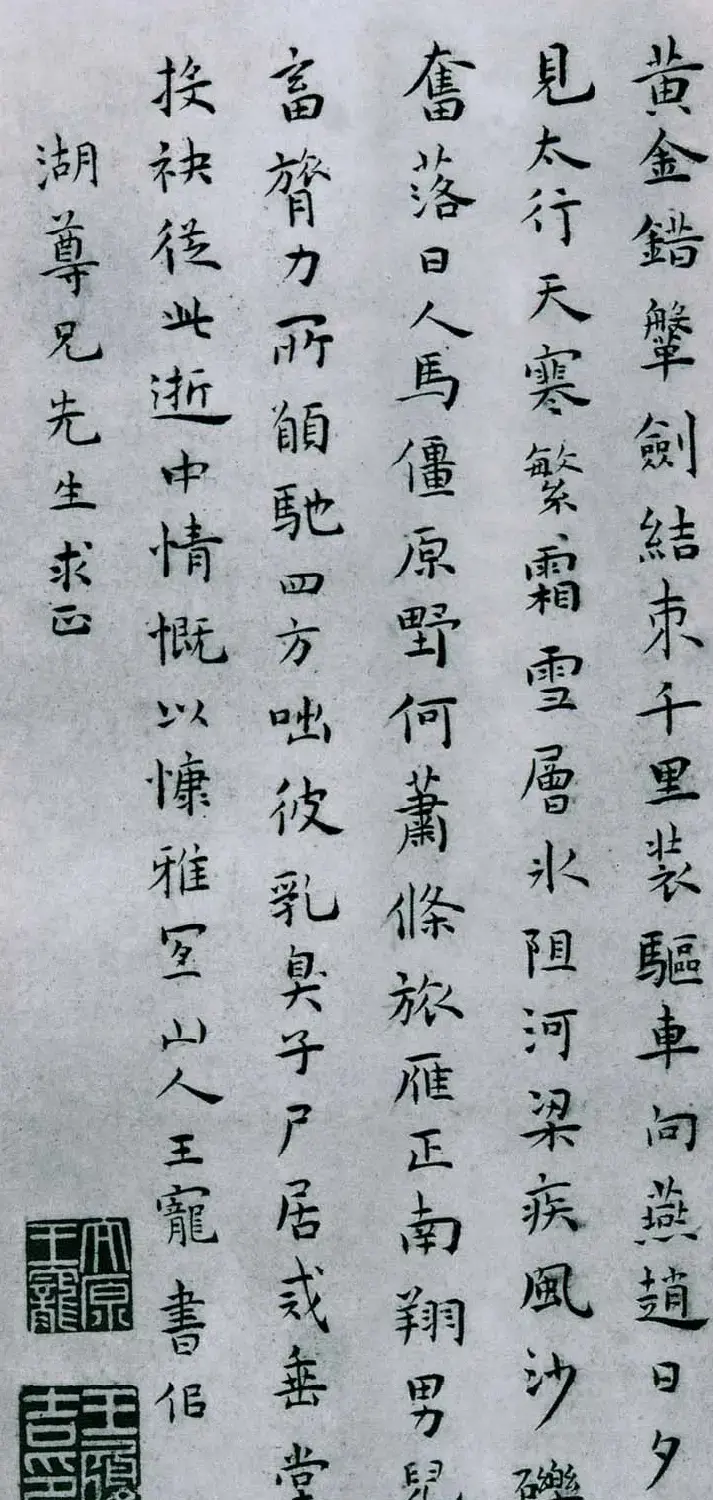 黃金錯鞶劍結束千里裝驅車向燕趙日夕
見太行天寒繁霜雪層氷阻河梁疾風沙礫
奮落日人馬僵原野何蕭條旅雁正南翔男兒
畜膂力所願馳四方咄彼乳臭子尸居戒垂堂
投袂從此逝中情慨以慷雅宜山人王寵書似
湖尊兄先生求正
太原王寵